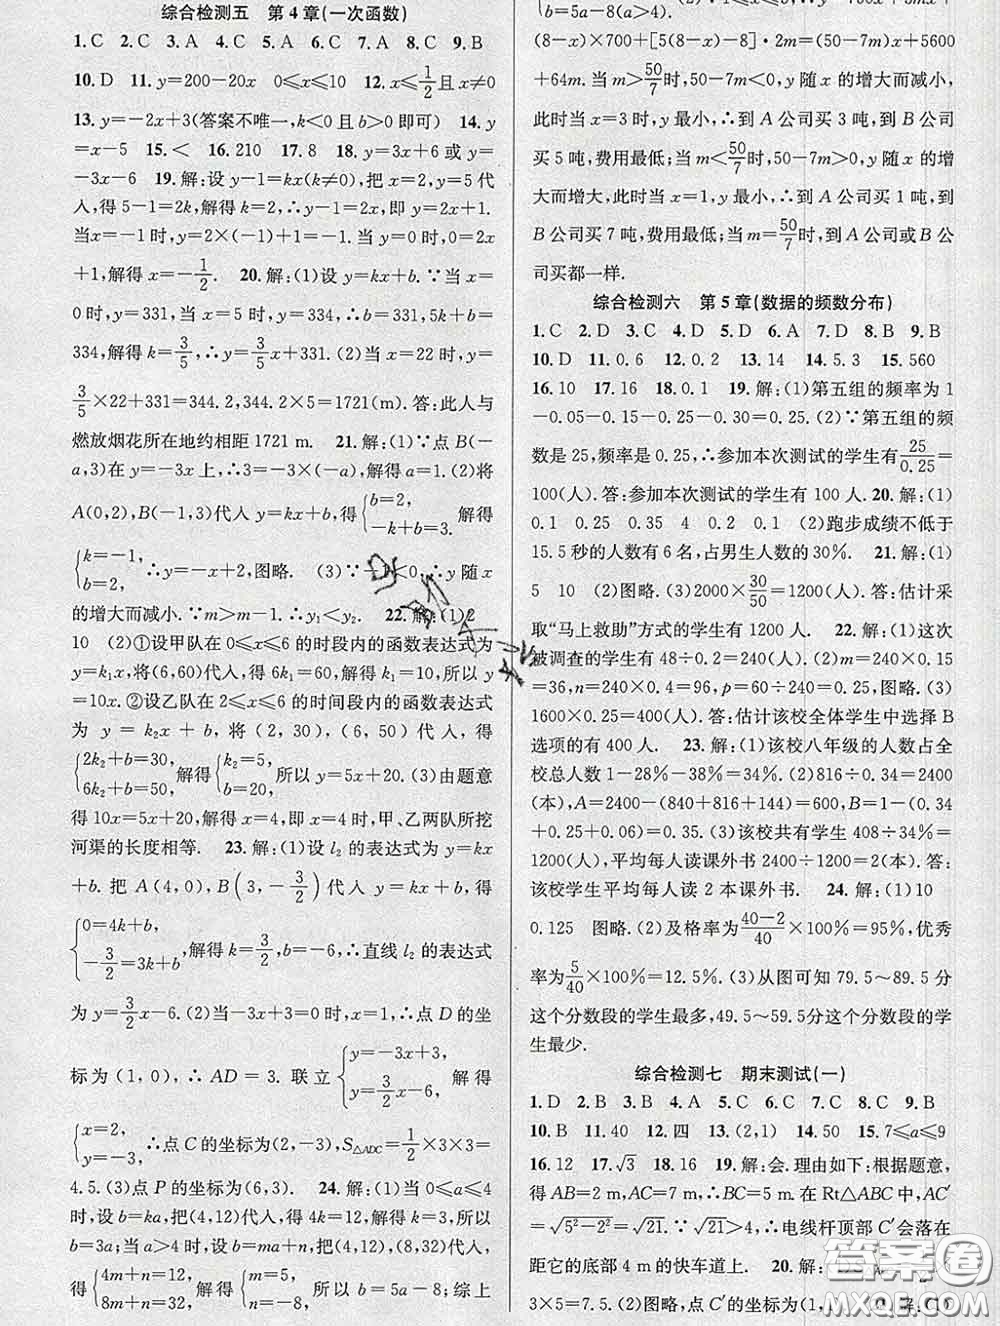 综合检测五 第4章(一次函数)
1. C 2. C 3. A 4. C 5. A 6. C 7. A 8. C 9. B
10. D 11. y=200-20x 0≤x≤10 12. x≤1/2且x≠0
13. y=-2x+3(答案不唯一,k<0且b>0即可) 14. y
=x-5 15. < 16. 210 17. 8 18. y=3x+6或y=
-3x-6 19. 解:设y-1=kx(k≠0),把x=2,y=5代
入,得5-1=2k,解得k=2,∴y-1=2x,即y=2x+1.
当x=-1时,y=2×(-1)+1=-1.当y=0时,0=2x
+1,解得x=-1/2. 20. 解:(1)设y=kx+b.∵当x=
0时,y=331,当x=5时,y=334,∴b=331,5k+b=
334,解得k=3/5,∴y=3/5x+331.(2)当x=22时,y=
3/5×22+331=344.2,344.2×5=1721(m).答:此人与
燃放烟花所在地约相距1721 m. 21. 解:(1)∵点B(-
a,3)在y=-3x上,∴3=-3×(-a),解得a=1.(2)将
A(0,2),B(-1,3)代入y=kx+b,得{b=2, -k+b=3. 解得
{k=-1, b=2, ∴y=-x+2,图略. (3)∵-1<0,∴y随x
的增大而减小.∵m>m-1.∴y₁<y₂. 22. 解:(1)2
10 (2)①设甲队在0≤x≤6的时段内的函数表达式为
y=k₁x,将(6,60)代入,得6k₁=60,解得k₁=10,所以y=
10x.②设乙队在2≤x≤6的时间段内的函数表达式
为y=k₂x+b,将(2,30),(6,50)代入,得
{2k₂+b=30, 6k₂+b=50, 解得{k₂=5, b=20, 所以y=5x+20.(3)由题意
得10x=5x+20,解得x=4,即x=4时,甲、乙两队所挖
河渠的长度相等. 23. 解:(1)设l₂的表达式为y=kx
+b.把A(4,0),B(3,-3/2)代入y=kx+b,得
{0=4k+b, -3/2=3k+b, 解得k=3/2,b=-6,∴直线l₂的表达式
为y=3/2x-6.(2)当-3x+3=0时,x=1,∴点D的坐
标为(1,0),∴AD=3.联立{y=-3x+3, y=3/2x-6, 解得
{x=2, y=-3, ∴点C的坐标为(2,-3),S△ADC=1/2×3×3=
4.5.(3)点P的坐标为(6,3). 24. 解:(1)当0≤a≤4
时,设b=ka,把(4,12)代入,得4k=12,解得k=3,所以
b=3a;当a>4时,设b=ma+n,把(4,12),(8,32)代入,
得{4m+n=12, 8m+n=32, 解得{m=5, n=-8, 所以b=5a-8;综上
b=5a-8(a>4).
(8-x)×700+[5(8-x)-8]·2m=(50-7m)x+5600
+64m.当m>50/7时,50-7m<0,y随x的增大而减小,
此时当x=3时,y最小,∴到A公司买3吨,到B公司
买5吨,费用最低;当m<50/7时,50-7m>0,y随x的增
大而增大,此时当x=1时,y最小,∴到A公司买1吨,到
B公司买7吨,费用最低;当m=50/7时,到A公司或B公
司买都一样.
综合检测六 第5章(数据的频数分布)
1. C 2. D 3. C 4. D 5. D 6. A 7. D 8. B 9. B
10. D 11. 0.6 12. 0.2 13. 14 14. 5,3 15. 560
16. 10 17. 16 18. 0.1 19. 解:(1)第五组的频率为1
-0.05-0.15-0.25-0.30=0.25.(2)∵第五组的频
数是25,频率是0.25,∴参加本次测试的学生有25/0.25=
100(人).答:参加本次测试的学生有100人. 20. 解:(1)
0.1 0.25 0.35 6 4 0.2 0.1 (2)跑步成绩不低于
15.5秒的人数有6名,占男生人数的30%. 21. 解:(1)
5 10 (2)图略.(3)2000×30/50=1200(人).答:估计采
取“马上救助”方式的学生有1200人. 22. 解:(1)这次
被调查的学生有48÷0.2=240(人).(2)m=240×0.15
=36,n=240×0.4=96,p=60÷240=0.25,图略.(3)
1600×0.25=400(人).答:估计该校全体学生中选择B
选项的有400人. 23. 解:(1)该校八年级的人数占全
校总人数1-28%-38%=34%.(2)816÷0.34=2400
(本),A=2400-(840+816+144)=600,B=1-(0.34
+0.25+0.06)=0.35.(3)该校共有学生408÷34%=
1200(人),平均每人读课外书2400÷1200=2(本).答:
该校学生平均每人读2本课外书. 24. 解:(1)10
0.125 图略.(2)及格率为40-2/40×100%=95%,优秀
率为5/40×100%=12.5%.(3)从图可知79.5~89.5分
这个分数段的学生最多,49.5~59.5分这个分数段的学
生最少.
综合检测七 期末测试(一)
1. D 2. B 3. B 4. B 5. C 6. C 7. C 8. C 9. B
10. B 11. 40 12. 四 13. (2,1) 14. 50 15. 7≤a≤9
16. 12 17. √3 18. 16 19. 解:会.理由如下:根据题意,
得AB=2 m,AC=7 m,∴BC=5 m.在Rt△ABC中,AC′
=√(5²-2²)=√21.∵√21>4,∴电线杆顶部C′会落在
距它的底部4 m的快车道上. 20. 解:
3×5=7.5.(2)图略,点C′的坐标为(1,
答案圈
MXQE.COM